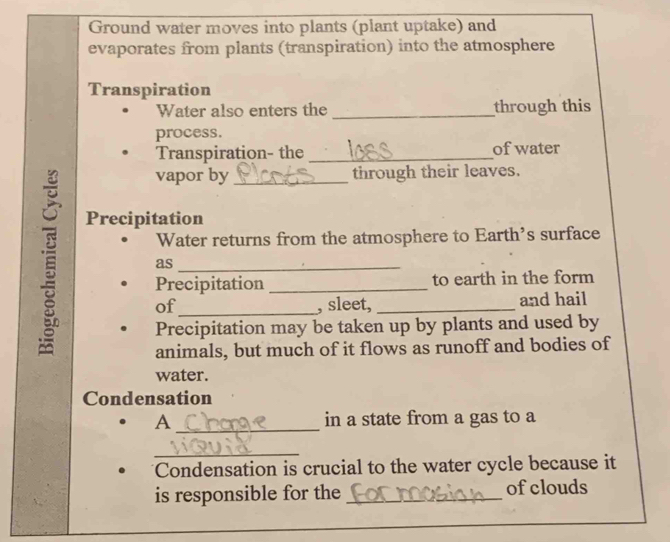 Ground water moves into plants (plant uptake) and
evaporates from plants (transpiration) into the atmosphere
Transpiration
• Water also enters the ____________ through this
process.
• Transpiration- the loss of water
vapor by Plants through their leaves.
Biogeochemical Cycles
Precipitation
• Water returns from the atmosphere to Earth's surface
as ____________
• Precipitation ____________ to earth in the form
of ____________, sleet, ____________ and hail
• Precipitation may be taken up by plants and used by
animals, but much of it flows as runoff and bodies of
water.
Condensation
• A Change in a state from a gas to a
liquid
• Condensation is crucial to the water cycle because it
is responsible for the formasion of clouds